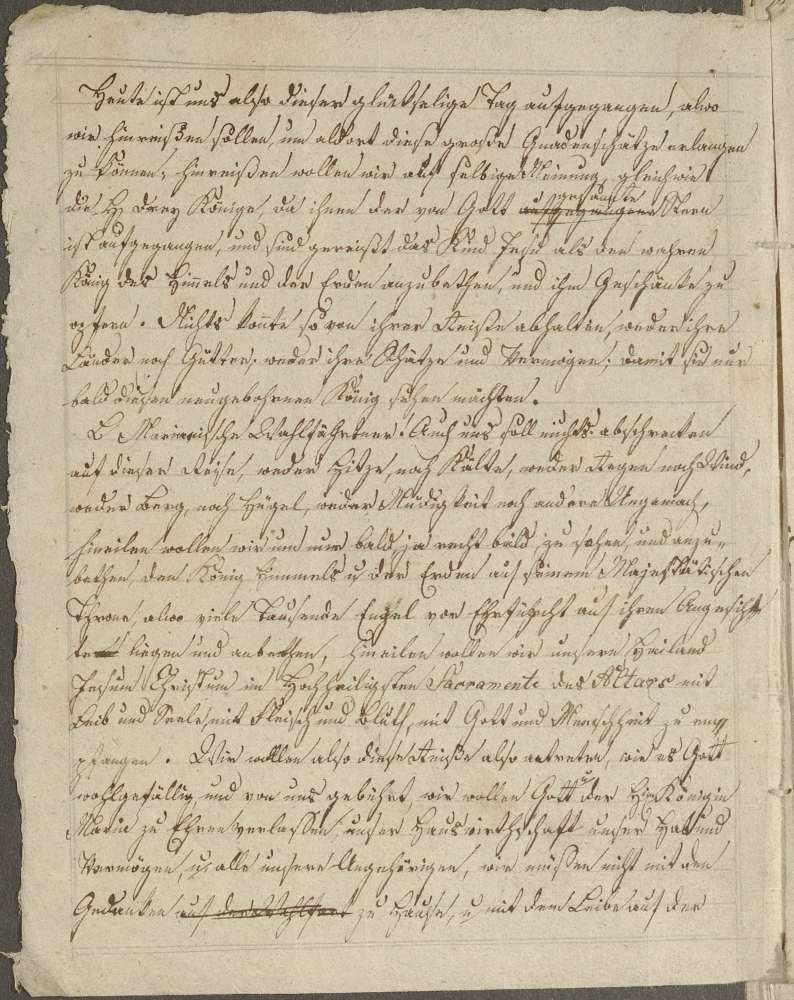 Heute ist uns also dieser glückselige Tag aufgegangen, alwo
wir hinreißen sollen, um aldort diese große Gnadenschätze erlangen
zu können; hinreißen wollen wir auf selbige Meinung, gleichwie
die H Drey Könige, da ihnen der von Gott aufgegangene gesandte Stern
ist aufgegangen, und sind gereißt das Kind Jesu als den wahren
König des Himels und der Erden anzubethen, und ihm Geschänke zu
opfern. Nichts konte so von ihrer Reiße abhalten, weder ihre
Länder noch Gütter, weder ihre Schätze und Vermögen; damit sie nur
bald diesen neugebohrnen König sehen möchten.
L Marianische Wahlfährtner! Auch uns soll nichts abschrecken
auf dieser Reise, weder Hitze, noch Kälte, weder Regen noch Wind,
weder Berg, noch Hügel, weder Mudigkeit noch andere Ungemach,
hineilen wollen wir um nur bald, ja recht bald zu sehen, und anzu-
bethen, den König Himmels u der Erden auf seinem Majestätischen
Throne, alwo viele Tausende Engel vor Ehrfurcht auf ihren Angesich-
tern liegen und anbethen, hineilen wollen wir unsern Heiland
Jesum Christum im Hochheiligsten Sacramente des Altars mit
Leib und Seele, mit Fleisch und Bluth, mit Gott und Menschheit zu em-
pfangen. Wir wollen also diese Reiße also antreten, wie es Gott
wohlgefällig und von uns gebührt, wir wollen Gott u der Him Königin
Maria zu Ehren verlassen, unser Hauswirthschaft unser Hab und
Vermögen, u alle unsere Angehörigen, wir müssen nicht mit den
Gedanken auf der Wahlfart zu Hause, u mit dem Leibe auf der